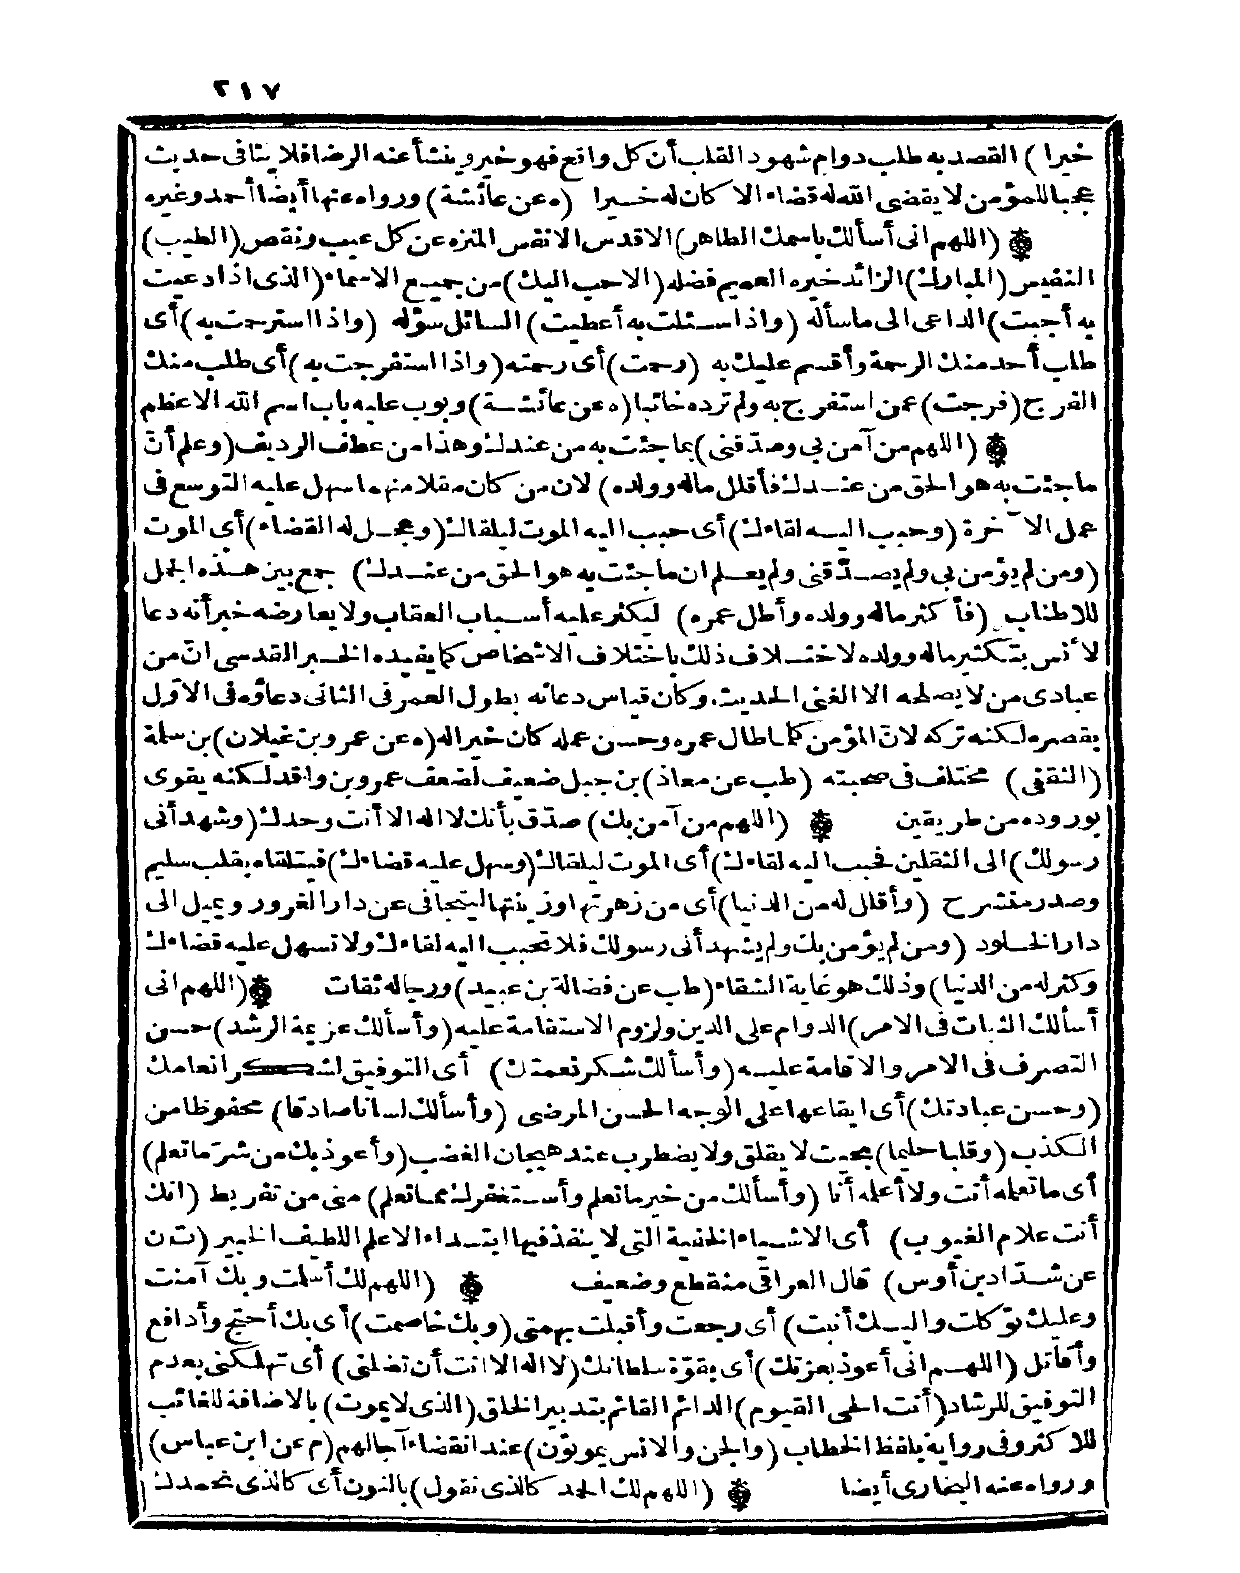 ٢١٧
خيرا) القصد به طلب دوام شهود القلب أن كل واقع فهو خير وينشأ عنه الرضا فلا ينافى حديث
عجبا للمؤمن لا يقضى الله له قضاء الا كان له خيرا (ه عن عائشة) ورواه عنها أيضا أحمد وغيره
(اللهم انى أسألك باسمك الطاهر) الاقدس الانفس المنزه عن كل عيب ونقص (الطيب)
النفيس (المبارك) الزائد خيره العميم فضله (الاحب اليك) من جميع الاسماء (الذى اذا دعيت
به أجبت) الداعى الى ما سأله (واذا سئلت به أعطيت) السائل سؤله (واذا استرحمت به) أى
طلب أحد منك الرحمة وأقسم عليك به (رحمت) أى رحمته (واذا استفرجت به) أى طلب منك
الفرج (فرجت) عمن استفرج به ولم ترده خائبا (ه عن عائشة) وبوب عليه باب اسم الله الاعظم
(اللهم من آمن بي وصدّقنى) بما جئت به من عندك وهذا من عطف الرديف (وعلم أنّ
ما جئت به هو الحق من عندك فأقلل ماله وولده) لان من كان مقلا منهما سهل عليه التوسع فى
عمل الآخرة (وحبب اليه لقاءك) أى حبب اليه الموت ليلقاك (وعجل له القضاء) أى الموت
(ومن لم يؤمن بي ولم يصدّقنى ولم يعلم ان ما جئت به هو الحق من عندك) جمع بين هذه الجمل
للاطناب (فأكثر ماله وولده وأطل عمره) ليكثر عليه أسباب العقاب ولا يعارضه خبر أنه دعا
لأنس بتكثير ماله وولده لاختلاف ذلك باختلاف الاشخاص كما يفيده الخبر القدسى انّ من
عبادى من لا يصلحه الا الغنى الحديث وكان قياس دعائه بطول العمر فى الثانى دعاؤه فى الاوّل
بقصره لكنه تركه لانّ المؤمن كلما طال عمره وحسن عمله كان خيرا له (ه عن عمرو بن غيلان) بن سلمة
(الثقفى) مختلف فى صحبته (طب عن معاذ) بن جبل ضعيف لضعف عمرو بن واقد لكنه يقوى
بوروده من طريقين (اللهم من آمن بك) صدّق بأنك لا اله الا أنت وحدك (وشهد أنى
رسولك) الى الثقلين فحبب اليه لقاءك) أى الموت ليلقاك (وسهل عليه قضاءك) فيتلقاه بقلب سليم
وصدر منشرح (وأقلل له من الدنيا) أى من زهرتها وزينتها ليتجافى عن دار الغرور ويميل الى
دار الخلود (ومن لم يؤمن بك ولم يشهد أنى رسولك فلا تحبب اليه لقاءك ولا تسهل عليه قضاءك
وكثر له من الدنيا) وذلك هو غاية الشقاء (طب عن فضالة بن عبيد) ورجاله ثقات (اللهم انى
أسألك الثبات فى الامر) الدوام على الدين ولزوم الاستقامة عليه (وأسألك عزيمة الرشد) حسن
التصرف فى الامر والاقامة عليه (وأسألك شكر نعمتك) أى التوفيق لشكر انعامك
(وحسن عبادتك) أى ايقاعها على الوجه الحسن المرضى (وأسألك لسانا صادقا) محفوظا من
الكذب (وقلبا حليما) بحيث لا يقلق ولا يضطرب عند هيجان الغضب (وأعوذ بك من شرّ ما تعلم)
أى ما تعلمه أنت ولا أعلمه أنا (وأسألك من خير ما تعلم وأستغفرك مما تعلم) منى من تفريط (انك
أنت علام الغيوب) أى الاشياء الخفية التى لا ينفذ فيها ابتداء الا علم اللطيف الخبير (ت ن
عن شدّاد بن أوس) قال العراقى منقطع وضعيف (اللهم لك أسلمت وبك آمنت
وعليك توّكلت واليك أنبت) أى رجعت وأقبلت بهمتى (وبك خاصمت) أى بك أحتج وأدافع
وأقاتل (اللهم انى أعوذ بعزتك) أى بقوّة سلطانك (لا اله الا انت أن تضلنى) أى تهلكنى بعدم
التوفيق للرشاد (أنت الحى القيوم) الدائم القائم بتدبير الخلق (الذى لا يموت) بالاضافة للغائب
للاكثر وفى رواية بلفظ الخطاب (والجن والانس يموتون) عند انقضاء آجالهم (م عن ابن عباس)
ورواه عنه البخارى أيضا (اللهم لك الحمد كالذى نقول) بالنون أى كالذى نحمدك